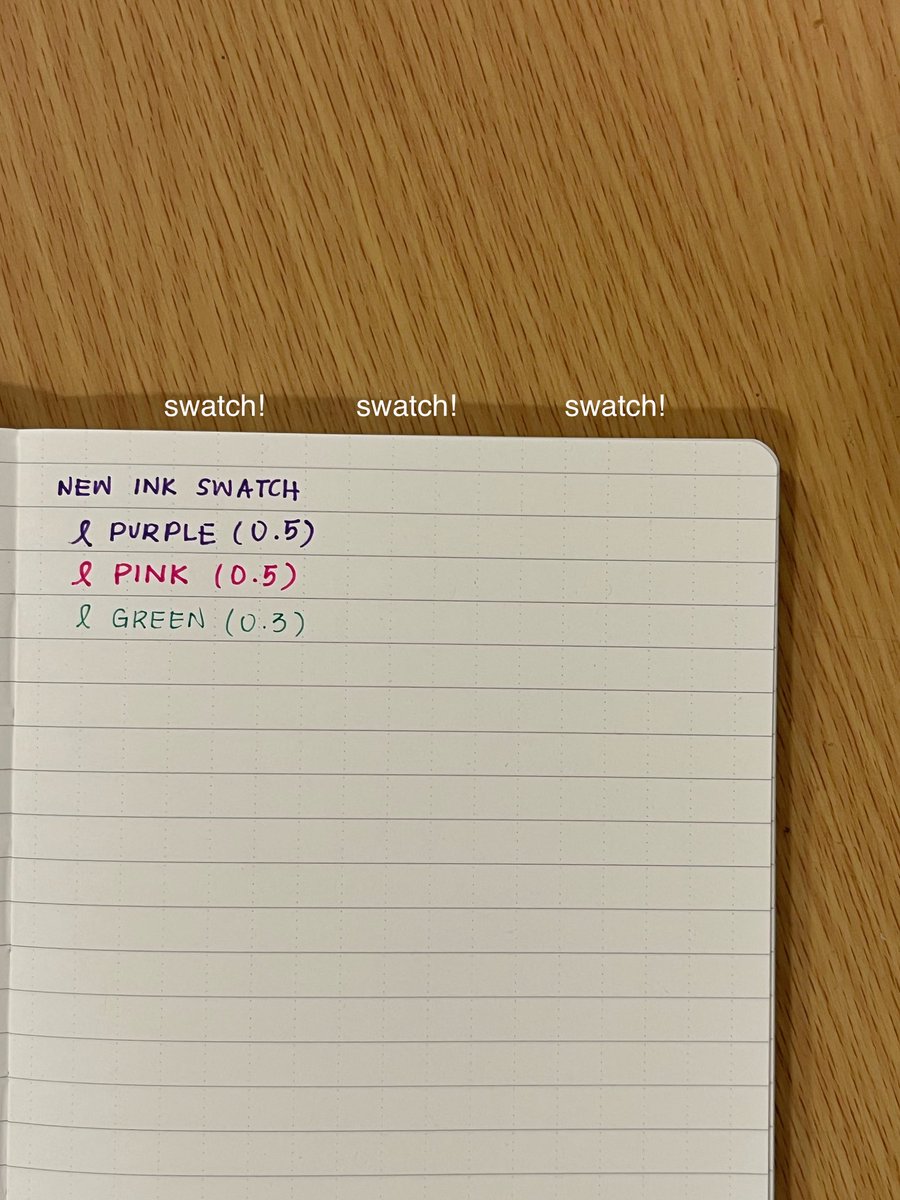 swatch! swatch! swatch!
NEW INK SWATCH
PURPLE (0.5)
PINK (0.5)
GREEN (0.3)